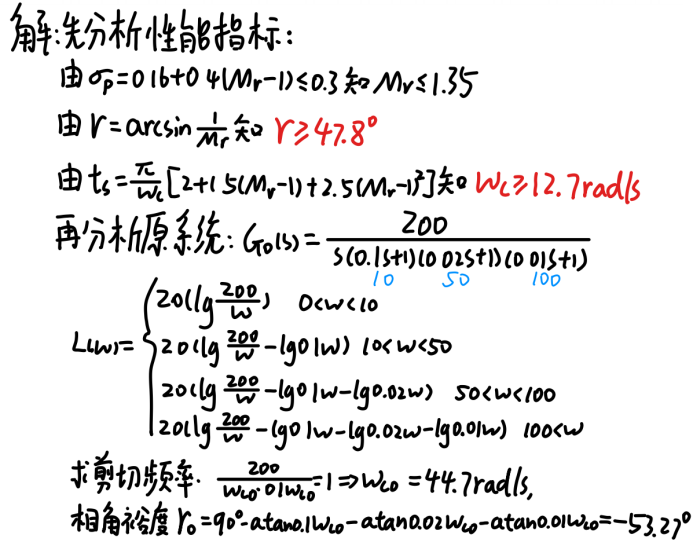 解:先分析性能指标:
由σp=0 16+0 4(Mr-1)≤0.3知Mr≤1.35
由γ=arcsin 1/Mr 知 γ≥47.8°
由ts=π/ωc[2+1 5(Mr-1)+2.5(Mr-1)²]知 ωc≥12.7rad/s
再分析原系统: G₀(s)=200/s(0.1s+1)(0 02s+1)(0 01s+1)
10 50 100
L(ω)={20(lg 200/ω) 0<ω<10
20(lg 200/ω-lg0 1ω) 10<ω<50
20(lg 200/ω-lg0 1ω-lg0.02ω) 50<ω<100
20(lg 200/ω-lg0 1ω-lg0.02ω-lg0.01ω) 100<ω
求剪切频率. 200/ωc0·01ωc0=1⇒ωc0=44.7rad/s,
相角裕度γ₀=90°-atan0.1ωc0-atan0.02ωc0-atan0.01ωc0=-53.27°